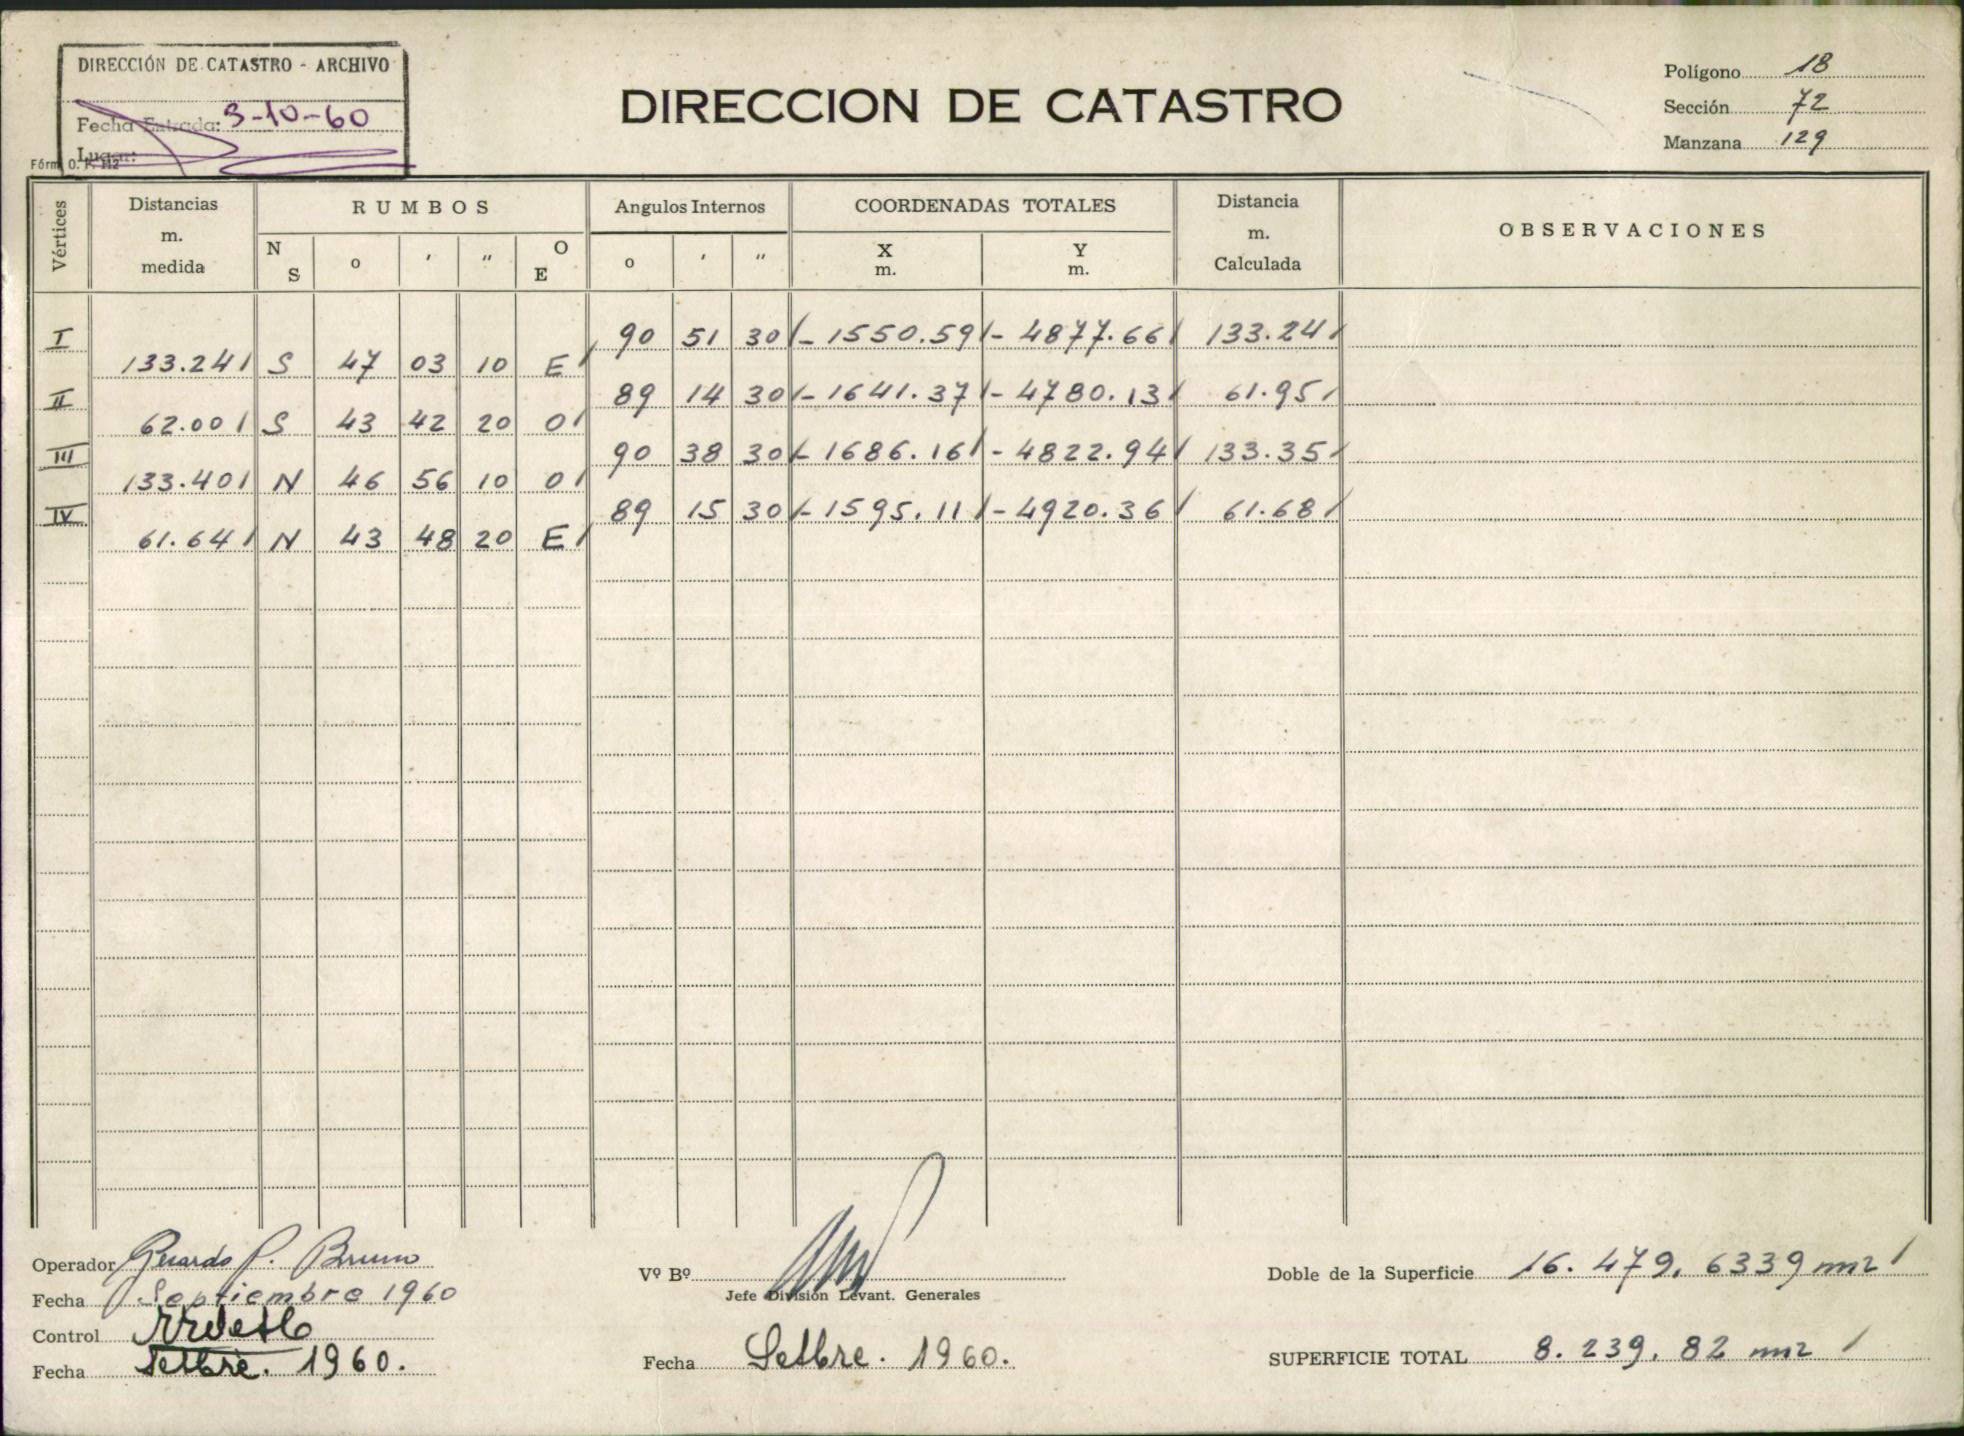 DIRECCIÓN DE CATASTRO - ARCHIVO
Fecha Entrada: 3-10-60
Lugar:
Fórm. O. P. 112
DIRECCION DE CATASTRO
Polígono 18
Sección 72
Manzana 129
Vértices
Distancias m. medida
RUMBOS
N S o ' " O E
Angulos Internos
o ' "
COORDENADAS TOTALES
X m. Y m.
Distancia m. Calculada
OBSERVACIONES
I 90 51 30 - 1550.59 - 4877.66 133.24
133.24 S 47 03 10 E
II 89 14 30 - 1641.37 - 4780.13 61.95
62.00 S 43 42 20 O
III 90 38 30 - 1686.16 - 4822.94 133.35
133.40 N 46 56 10 O
IV 89 15 30 - 1595.11 - 4920.36 61.68
61.64 N 43 48 20 E
Operador P. Bruno
Fecha Septiembre 1960
Control
Fecha Setbre. 1960.
Vº Bº
Jefe División Levant. Generales
Fecha Setbre. 1960.
Doble de la Superficie 16.479,6339 m2
SUPERFICIE TOTAL 8.239,82 m2